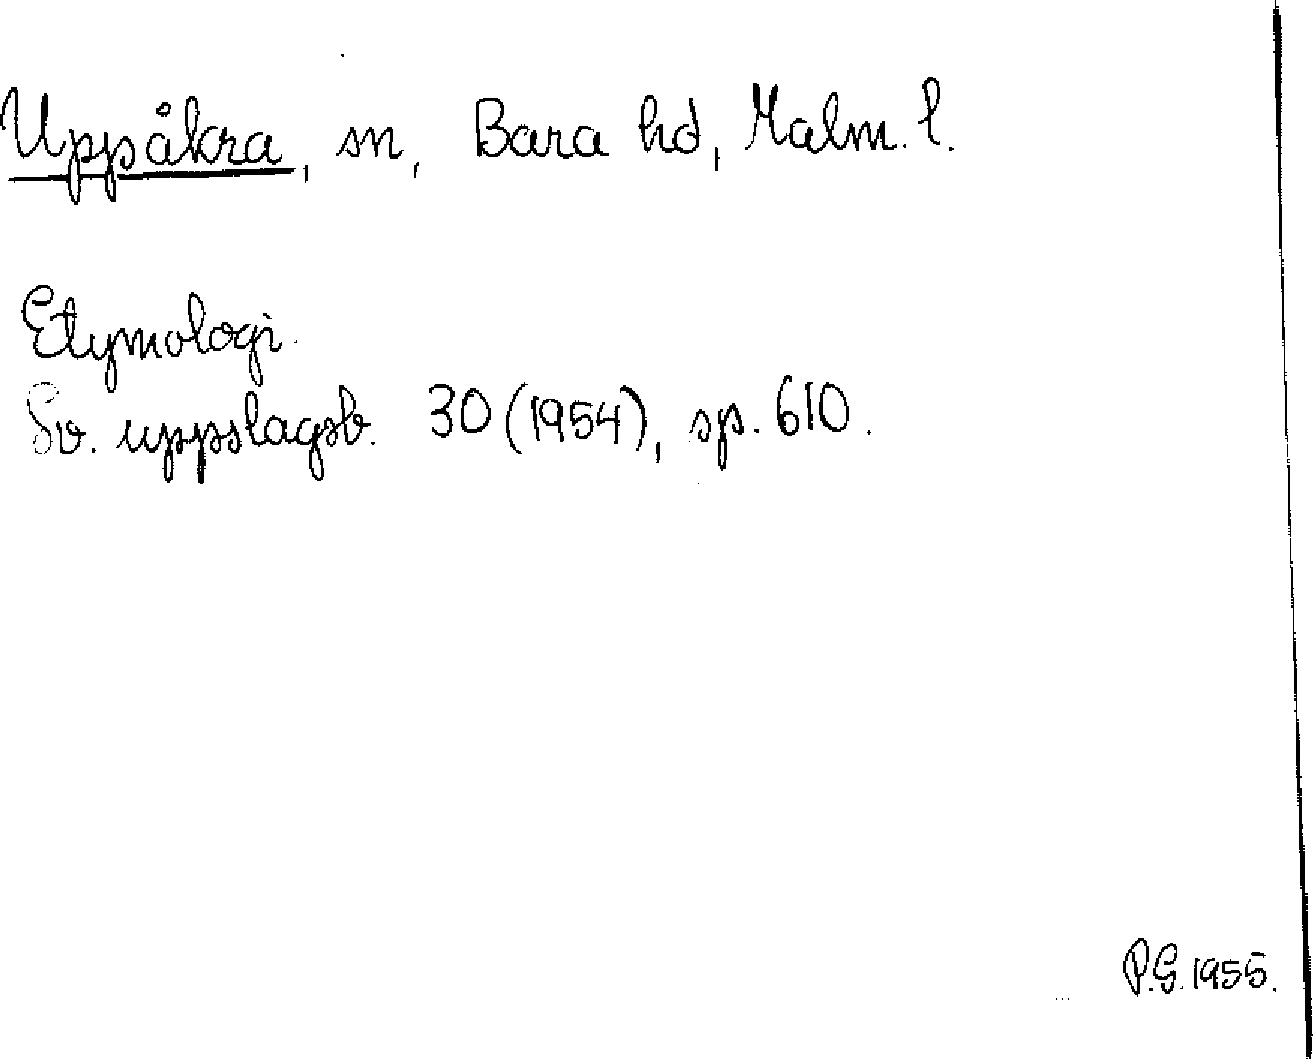 Uppåkra, sn, Bara hd, Malm. l.
Etymologi.
Sv. uppslagsb. 30 (1954), sp. 610.
P.G. 1955.